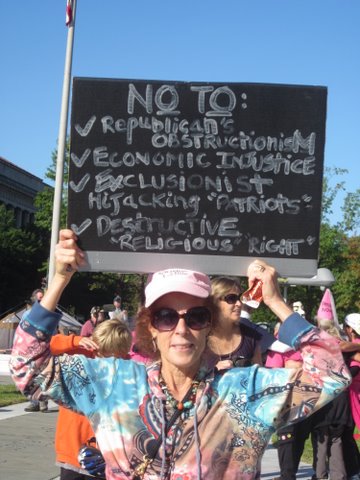 NO TO:
✓ Republican's
OBSTRUCTIONISM
✓ ECONOMIC INJUSTICE
✓ EXCLUSIONIST
HIJACKING "PATRIOTS"
✓ DESTRUCTIVE
"RELIGIOUS" "RIGHT"